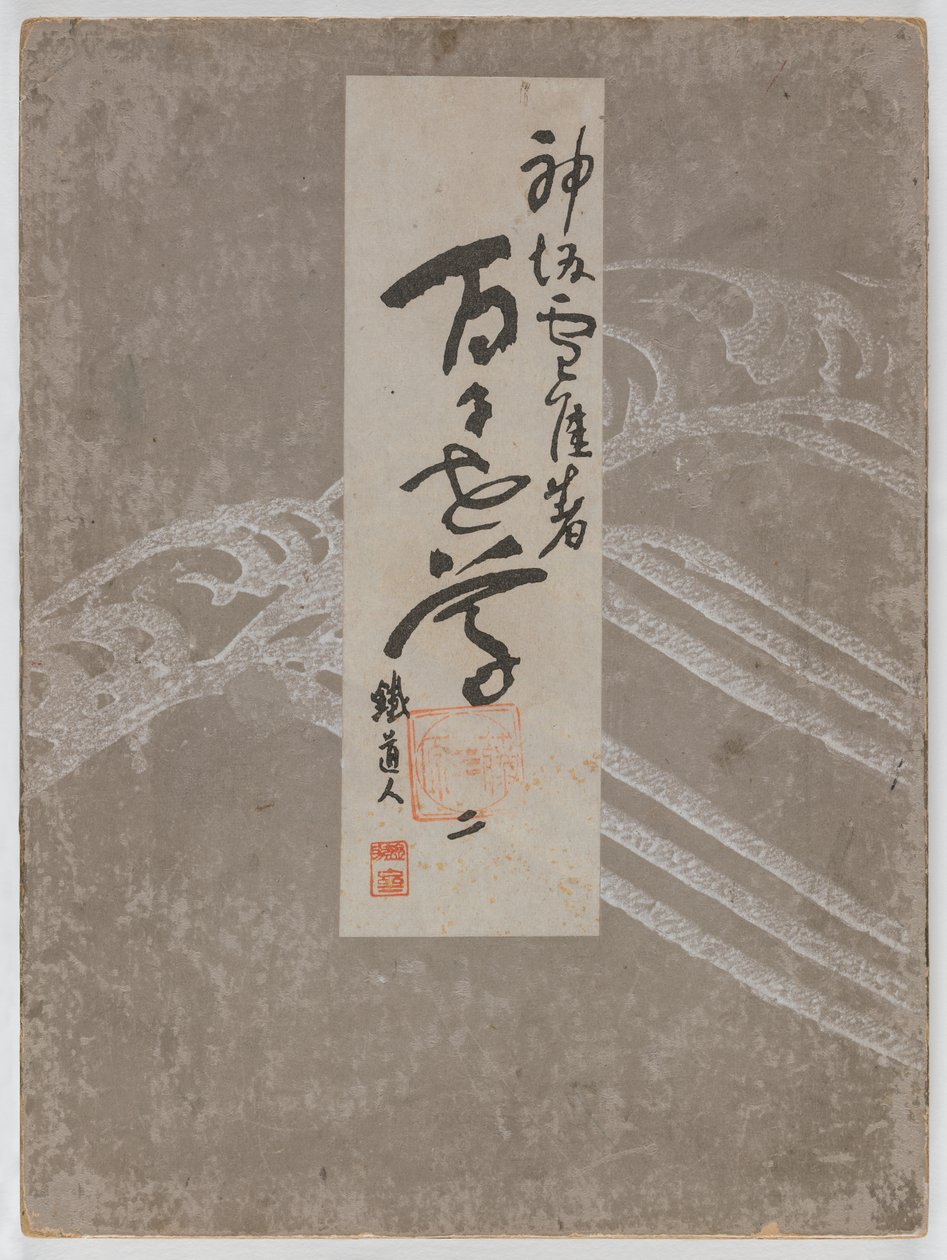 神坂雪佳著
百々世草
二
鐵道人